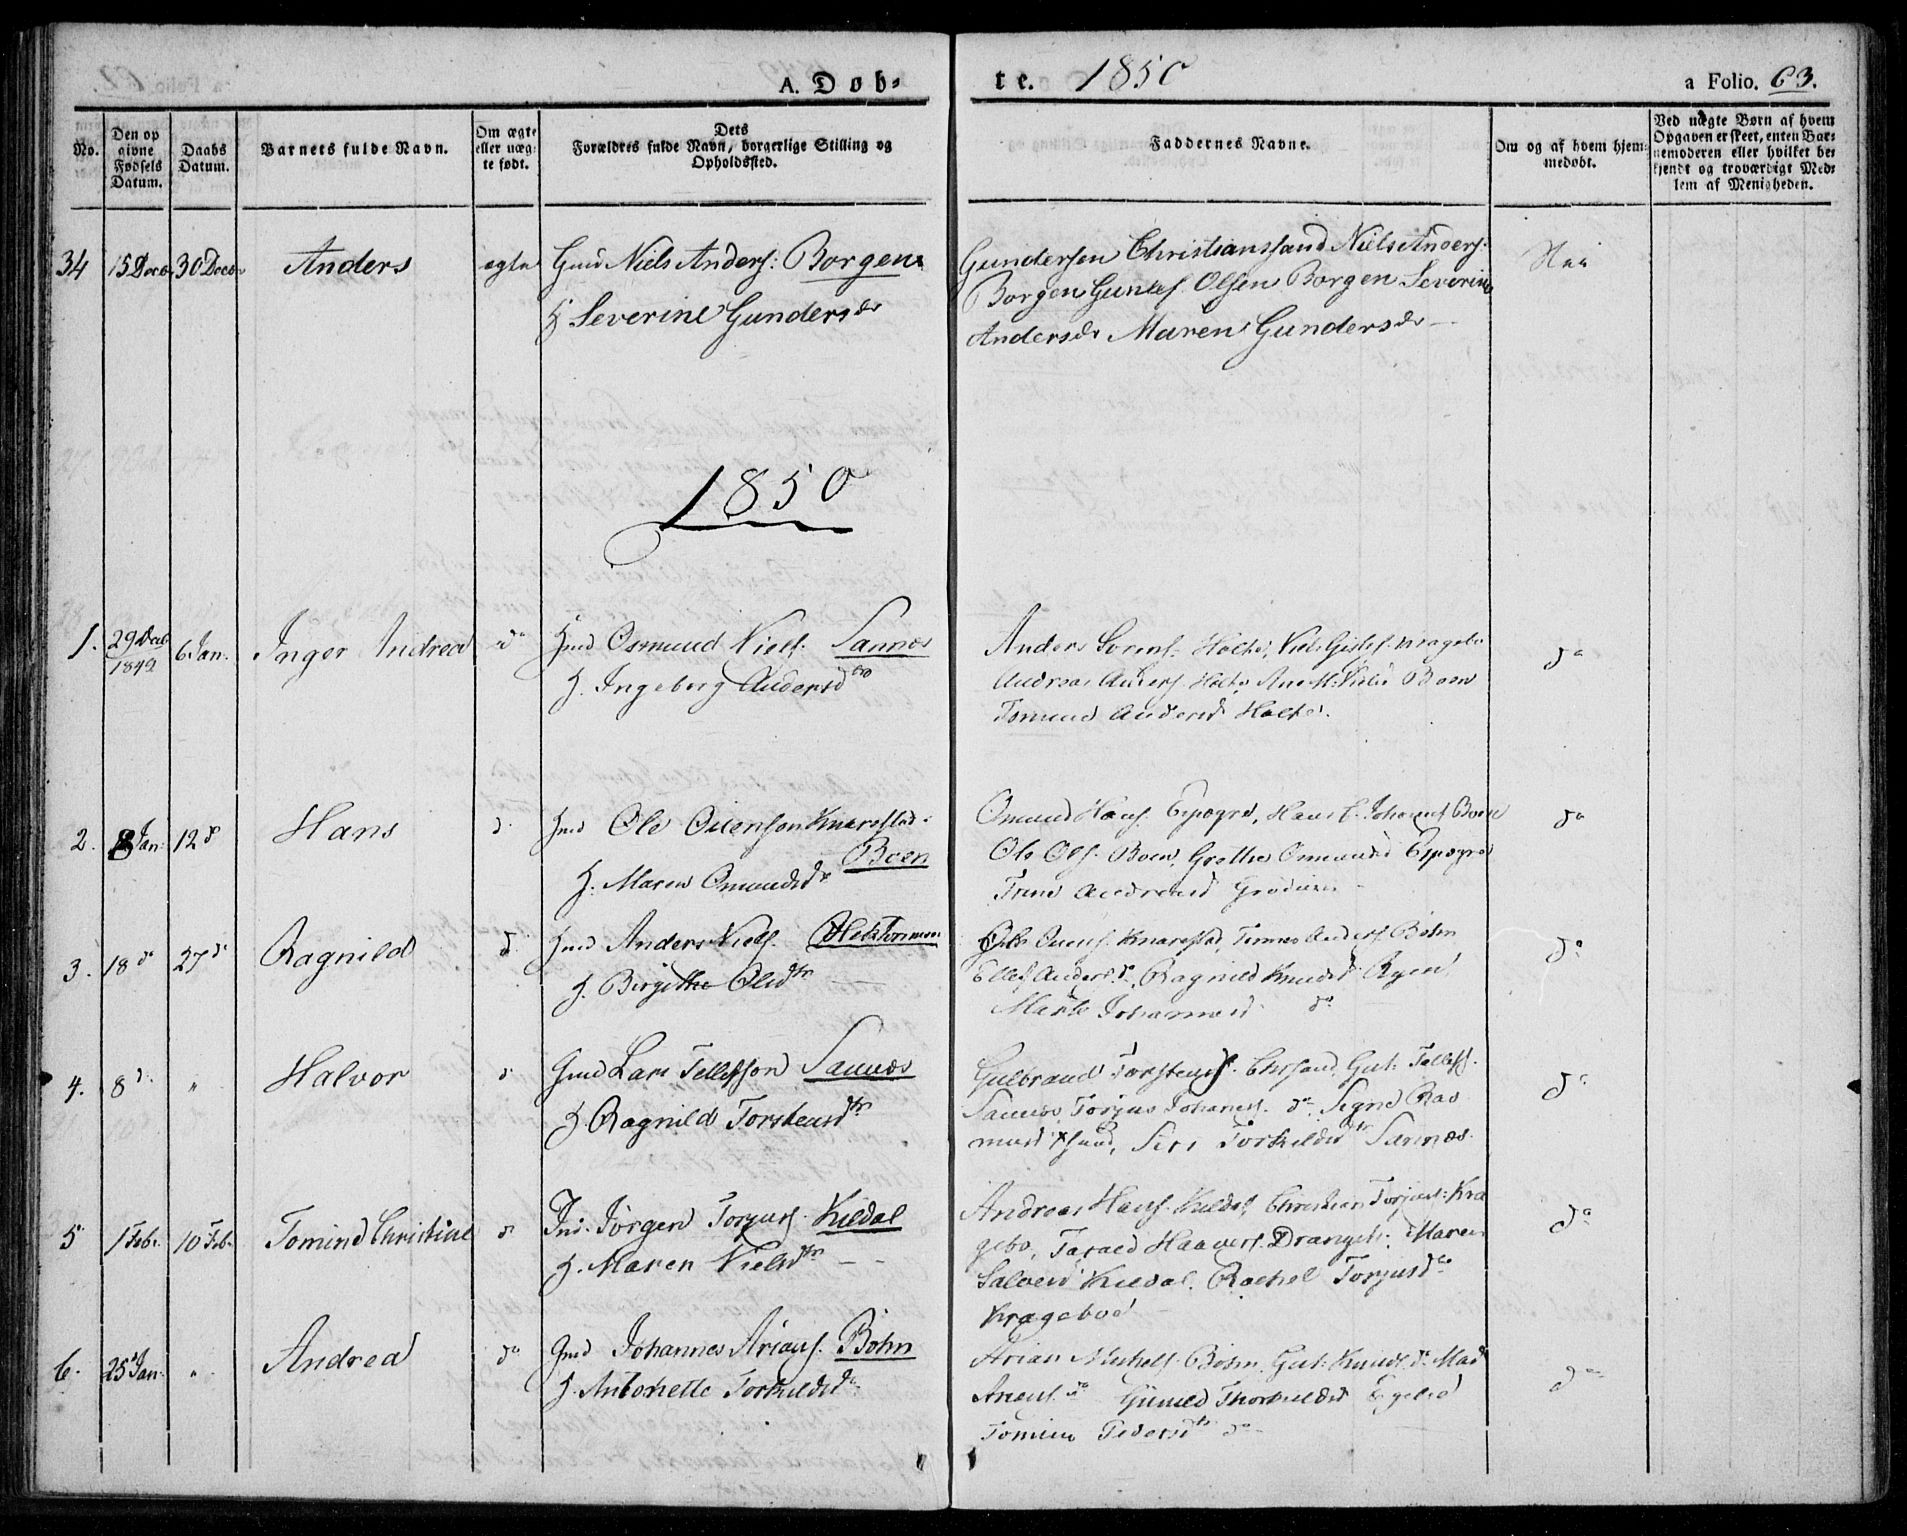 A. Døb-
te. 1850
a Folio. 63.
No.
Den op
givne
Fødsels
Datum.
Daabs
Datum.
Barnets fulde Navn.
Om ægte
eller uæg-
te født.
Dets
Forældres fulde Navn, borgerlige Stilling og
Opholdssted.
Faddernes Navne.
Om og af hvem hjem-
medøbt.
Ved uægte Børn af hvem
Opgaven er skeet, enten Bar-
nemoderen eller hvilket be-
kjendt og troværdigt Med-
lem af Menigheden.
34 15 Decbr 30 Decbr Anders ægte Gmd Niels Anders: Borgen
H Severine Gundersdr
Gundersen Christianssand Niels Anders:
Borgen Olsen Borgen Severine
Andersdr Maren Gundersdr
1850
1. 29 Decb 1849 6 Jan. Inger Andrea do Gmd Osmund Niels. Sannæs
H. Ingeborg Andersdtr
Anders Sørens. Holte, Niels Kragebo
Andreas Anders. Holte, Ane M. Boen
Tomine Andersd Holte.
do
2. 8 Jan. 12 do Hans d. Gmd Ole Knarestad
Boen
H. Maren Omundsdr
Omund Hans. Hans Johannes Boen
Ole Ols. Boen, Grethe Omundsd
Trine
do
3. 18 do 27 do Ragnild d. Gmd Anders Niels.
H. Birgithe Olsdtr
Ole Knarestad, Anders. Bøhn
Ellef Anders. do, Ragnild Knudsd Ryen
Marthe Johannesd do
do
4. 8 d. " Halvor d Gmd Lars Tellefsson Sannæs
H. Ragnild Torstensdtr
Gulbrand Torstens. Chrsand, Gut. Tellefs.
Sannæs Torjus Johannes. do. Signe Ras
musd Xsand, Siri Torkildsdtr Sannæs.
do
5 1 Feb. 10 Feb. Tomine Christine d Ind. Jørgen Torjus. Kildal
H. Maren Nielsdtr
Andreas Hans. Kildal, Christian Torjus: Kra
gebo, Tarald Haavors. Maren
Salvesd Kildal. Rachel Torjusdtr
Kragebo
do
6. 25 Jan. " Andrea do Gmd Johannes Arians. Bøhn
H. Antonette Torkildsd
Arian Michels. Bøhn, Gut. Knuds. do Mads
Arians. do Gunild Thorkildsd
Tomine Pedersdtr do
do